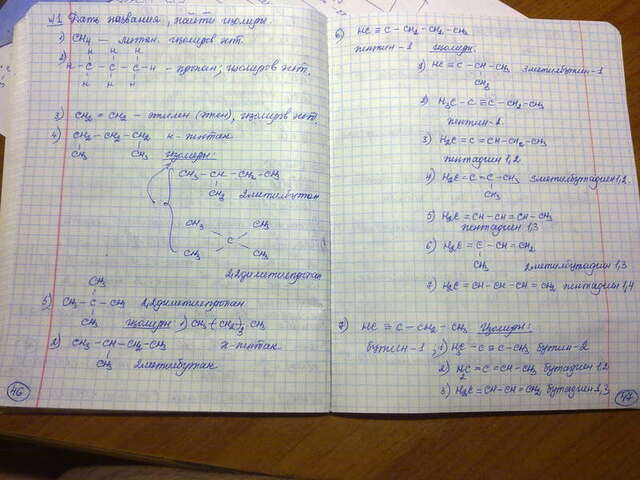 №1 Дать названия, найти изомеры.
1) CH4 — метан. изомеров нет.
H H H
2) H-C-C-C-H - пропан; изомеров нет.
H H H
3) CH2 = CH2 - этилен (этен), изомеров нет.
4) CH2-CH2-CH2 н-пентан
CH3 CH3 изомеры:
CH3-CH-CH2-CH3
CH3 2метилбутан
CH3 CH3
C
CH3 CH3
2,2диметилпропан
CH3
5) CH3-C-CH3 2,2диметилпропан
CH3 изомеры 1) CH3(CH2)3CH3
н-пентан
2) CH3-CH-CH2-CH3
CH3 2метилбутан
46
6) HC≡C-CH2-CH2-CH3
пентин-1 изомеры:
1) HC≡C-CH-CH3 3метилбутин-1
CH3
2) H3C-C≡C-CH2-CH3
пентин-2.
3) H2C=C=CH-CH2-CH3
пентадиен 1,2
4) H2C=C=C-CH3 3метилбутадиен 1,2.
CH3
5) H2C=CH-CH=CH-CH3
пентадиен 1,3
6) H2C=C-CH=CH2
CH3 2метилбутадиен 1,3
7) H2C=CH-CH-CH=CH2 пентадиен 1,4
7) HC≡C-CH2-CH3 Изомеры:
бутин-1; 1) H3C-C≡C-CH3 бутин-2
2) H2C=C=CH-CH3 бутадиен 1,2
3) H2C=CH-CH=CH2 бутадиен 1,3
47